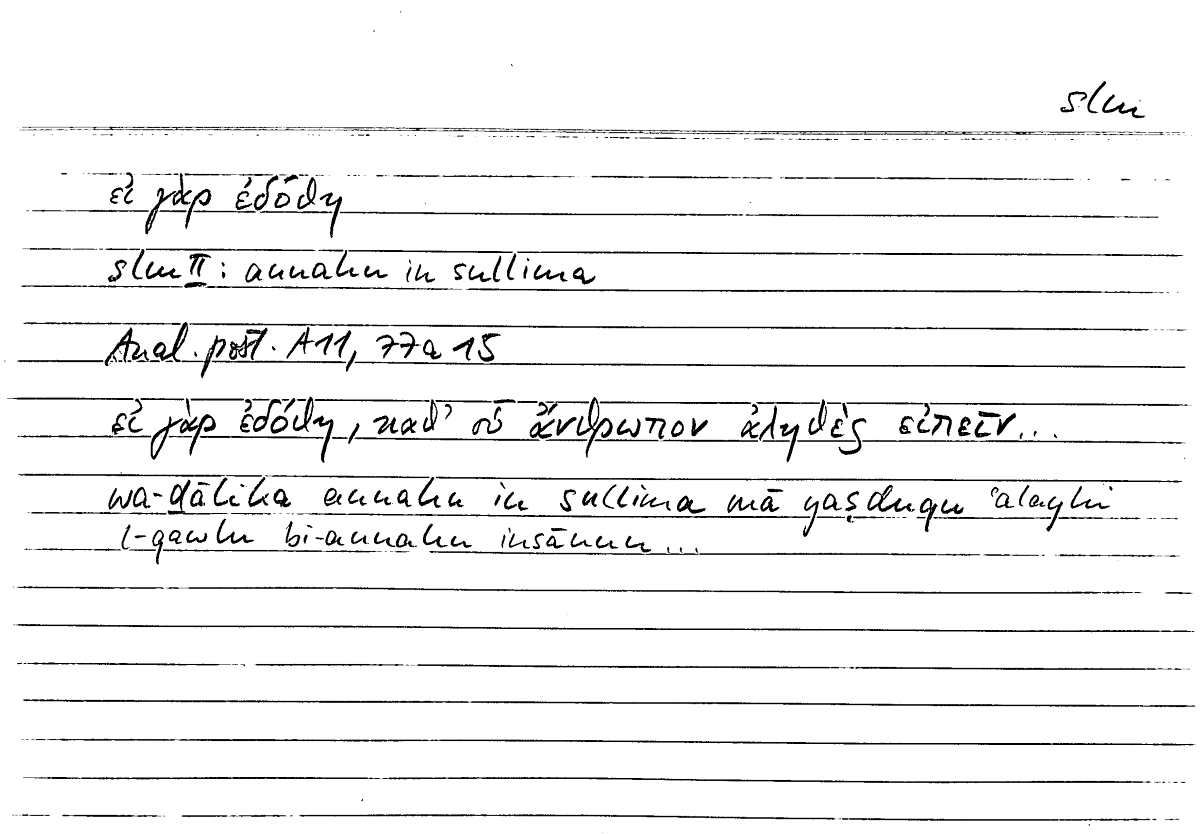 slm
εἰ γὰρ ἐδόθη
slm II: annahu in sullima
Anal. post. A11, 77a 15
εἰ γὰρ ἐδόθη, καθ' οὗ ἄνθρωπον ἀληθὲς εἰπεῖν...
wa-ḏālika annahu in sullima mā yaṣduqu ʿalayhi
l-qawlu bi-annahu insānun...